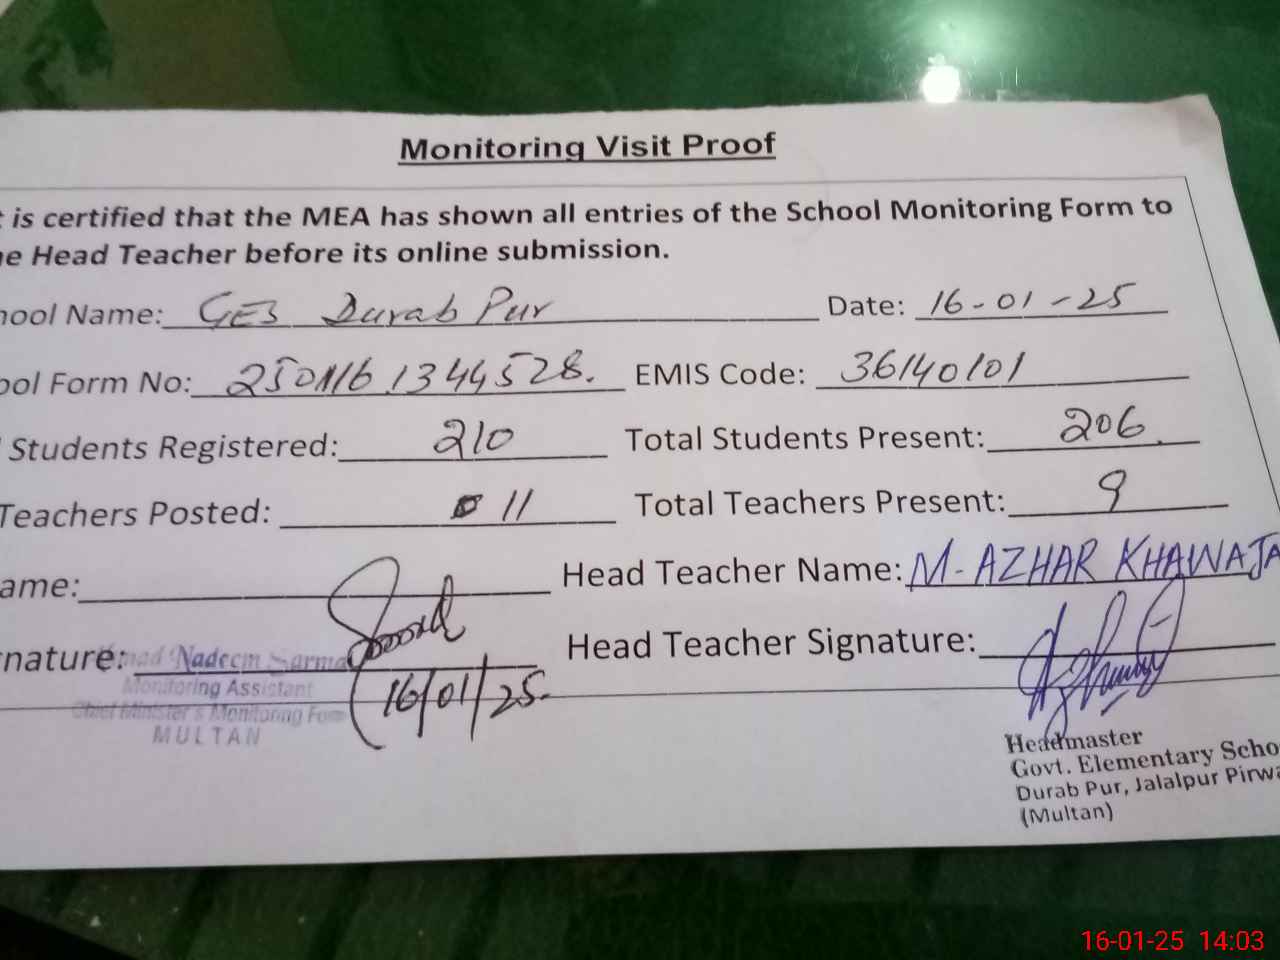 Monitoring Visit Proof
t is certified that the MEA has shown all entries of the School Monitoring Form to
e Head Teacher before its online submission.
hool Name: GES Durab Pur Date: 16-01-25
ool Form No: EMIS Code: 36140101
Students Registered: 210 Total Students Present: 206
Teachers Posted: 11 Total Teachers Present: 9
ame: Head Teacher Name: M. AZHAR KHAWAJA
nature: Head Teacher Signature:
Nadeem Sarma
Monitoring Assistant
Chief Minister's Monitoring
MULTAN
16/01/25.
Headmaster
Govt. Elementary Scho
Durab Pur, Jalalpur Pirwa
(Multan)
16-01-25 14:03